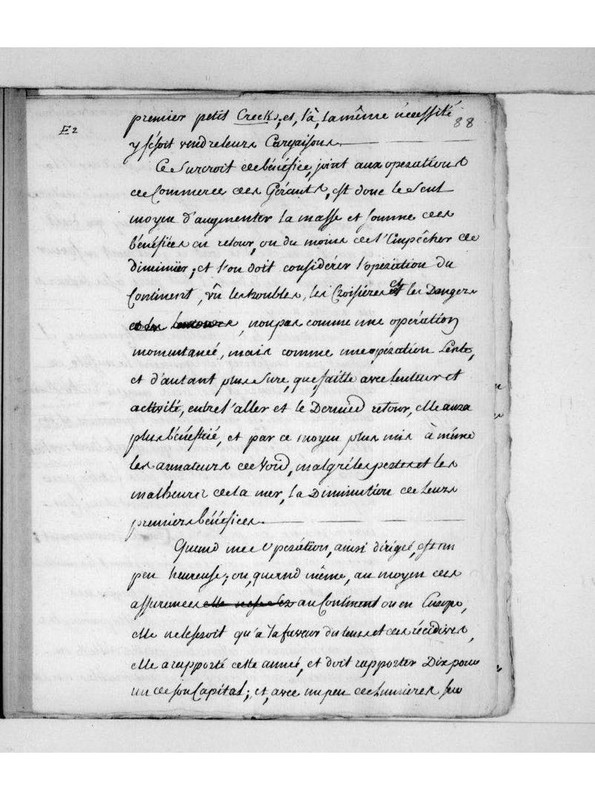 E2
88
premier petit Creeks, et, là, la même nécessité
y feroit vendre leurs Cargaisons.
Ce surcroit de bénéfice, joint aux opérations
de Commerce des Gérants, est donc le seul
moyen d'augmenter la masse et somme des
bénéfices au retour, ou du moins de l'empêcher de
diminüer, et l'on doit considérer l'opération du
Continent, vû les troubles, les Croisières et les Dangers
non pas comme une opération
momentaneé, mais comme une opération lente,
et d'autant plus sure, que faitte avec lenteur et
activité, entre l'aller et le Dernier retour, elle aura
plus bénéficié, et par ce moyen plus mis à même
les armateurs de voir, malgré les pertes et les
malheurs de la mer, la Diminution de leurs
premiers bénéfices.
Quand une Opération, ainsi dirigée, est un
peu heureuse; ou, quand même, au moyen des
assurances au Continent ou en Europe,
elle ne le seroit qu'à la faveur du tems et des récidives,
elle a rapporté cette année, et doit rapporter Dix pour
un de son Capital; et, avec un peu de Lumières